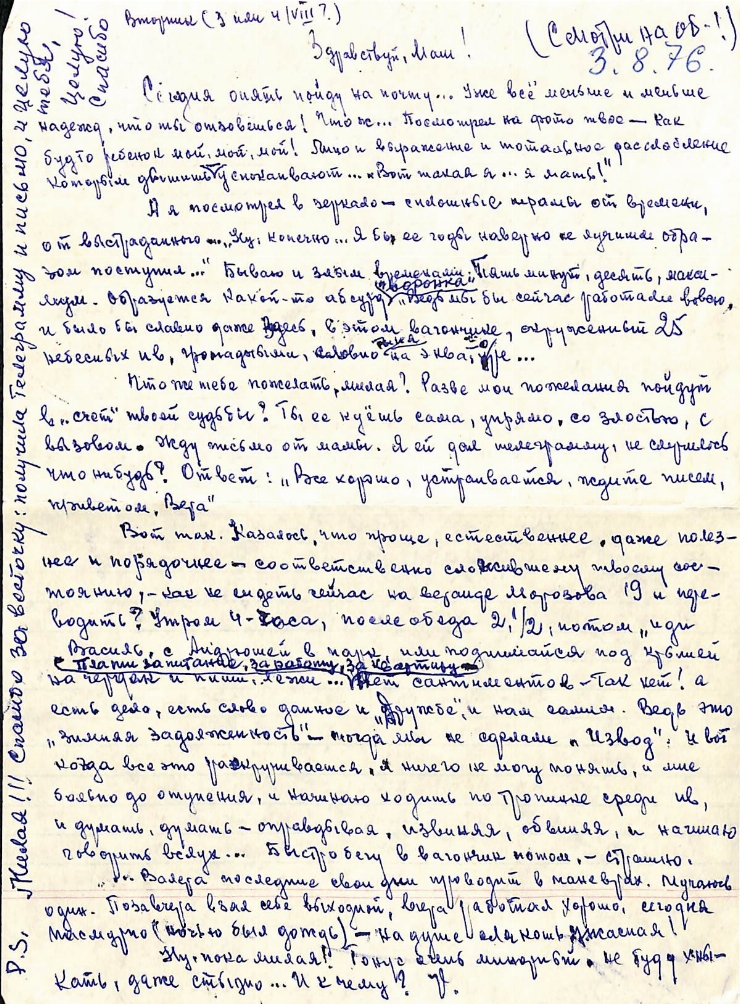 Вторник (3 или 4/VIII?.)
(Смотри на об-!)
3.8.76.
Здравствуй, Маш!
Сегодня опять пойду на почту... Уже всё меньше и меньше
надежд, что ты отзовёшься! Что ж... Посмотрел на фото твое — как
будто ребенок мой, мой, мой! Лицо и выражение и тотальное расслабление
которым дышишь успокаивают... „Вот такая я... я мать!"
А я посмотрел в зеркало — сплошные шрамы от времени,
от выстраданного... „Ну, конечно... Я бы в ее годы наверно не лучшим обра-
зом поступил..." Бываю и злым временами. Пять минут, десять, макси-
мум. Образуется какой-то абсурд „воронка". Ведь мы бы сейчас работали вовсю,
и было бы славно даже здесь, в этом вагончике, окруженный 25
небесных ив, громадными, словно на
Что же тебе пожелать, милая? Разве мои пожелания пойдут
в „счет" твоей судьбы? Ты ее куёшь сама, упрямо, со злостью, с
вызовом. Жду письмо от мамы. Я ей дал телеграмму, не случилось
что нибудь? Ответ: „Все хорошо, устраивается, ждите писем,
приветом, Вега"
Вот так. Казалось, что проще, естественнее, даже полез-
нее и порядочнее — соответственно сложившему твоему сос-
тоянию, — как не сидеть сейчас на веранде Морозова 19 и пере-
водить? Утром 4-часа, после обеда 2, 1/2, потом „иди
Василь, с Андрюшей в парк, или поднимайся под крышей
Плати за питание, за работу, за квартиру
на чердак и пиши, лежи... Нет сантиментов — так нет! а
есть дело, есть слово данное и „Дружбе", и нам самим. Ведь это
„зимняя задолженность" — когда мы не сделали „Извод". И вот
когда все это раскручивается, я ничего не могу понять, и мне
больно до отупения, и начинаю ходить по тропинке среди ив,
и думать, думать — оправдывая, извиняя, обвиняя, и начинаю
говорить вслух... Быстро бегу в вагончик потом, — страшно.
... Валега последние свои дни проводит в маневрах. Мучаюсь
один. Позавчера взял себе выходной, вчера работал хорошо, сегодня
пасмурно (ночью был дождь) — на душе слякошь ужасная!
Ну, пока милая! Тонус очень минорный. Не буду хны-
кать, даже стыдно... И к чему?
P.S. Милая!!! Спасибо за весточку: получила телеграмму и письмо, и целую
тебя,
Целую!
Спасибо